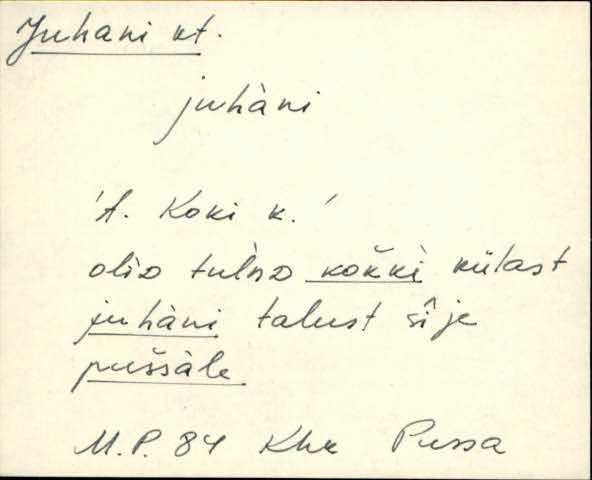 Juhani kt.
juhàni
't. Koki k.'
oliD tul'nD kokkì külast
juhàni talust sî je
puššàle
M.P. 84 Khk Pussa